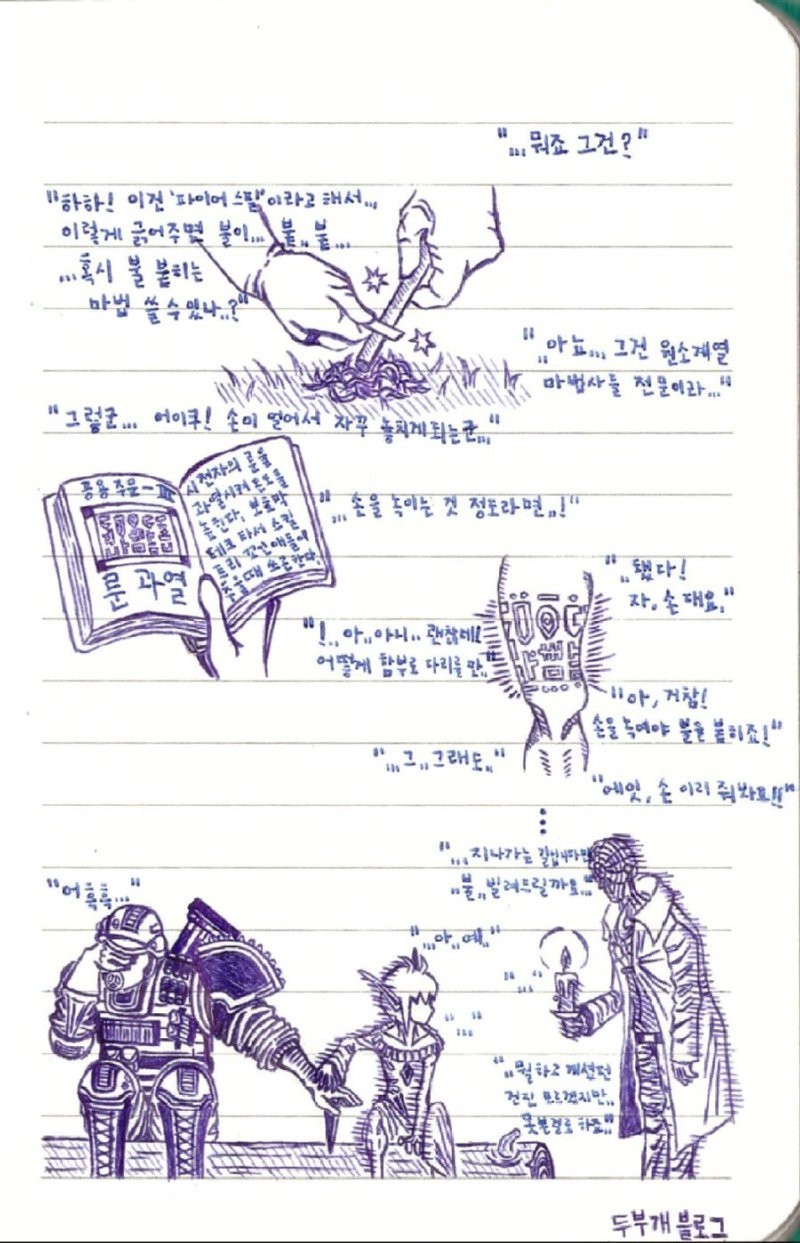 "...뭐죠 그건?"
"하하! 이건 '파이어 스틸'이라고 해서...
이렇게 긁어주면 불이... 불.. 불...
...혹시 불 붙히는
마법 쓸 수 있나..?"
"..아뇨... 그건 원소계열
마법사들 전문이라..."
"그렇군... 어이쿠! 손이 얼어서 자꾸 놓치게되는군..."
공용 주문-III
룬 과열
시전자의 룬을
과열시켜 온도를
높힌다. 보호막
테크 타서 스킬
트리 꼬인 애들이
추울때 쓰곤한다.
"...손을 녹이는 것 정도라면..!"
"..됐다!
자, 손 대요."
"!.. 아..아니.. 괜찮네!
어떻게 함부로 다리를 만.."
"아, 거참!
손을 녹여야 불을 붙히죠!"
"...그..그래도.."
"에잇, 손 이리 줘봐요!!"
"...지나가는 길입니다만
..불..빌려드릴까요..."
"어흑흑..."
"...아..예.."
"..."
"..."
"..뭘하고 계셨던
건진 모르겠지만..
못본걸로 하죠.."
두부개 블로그